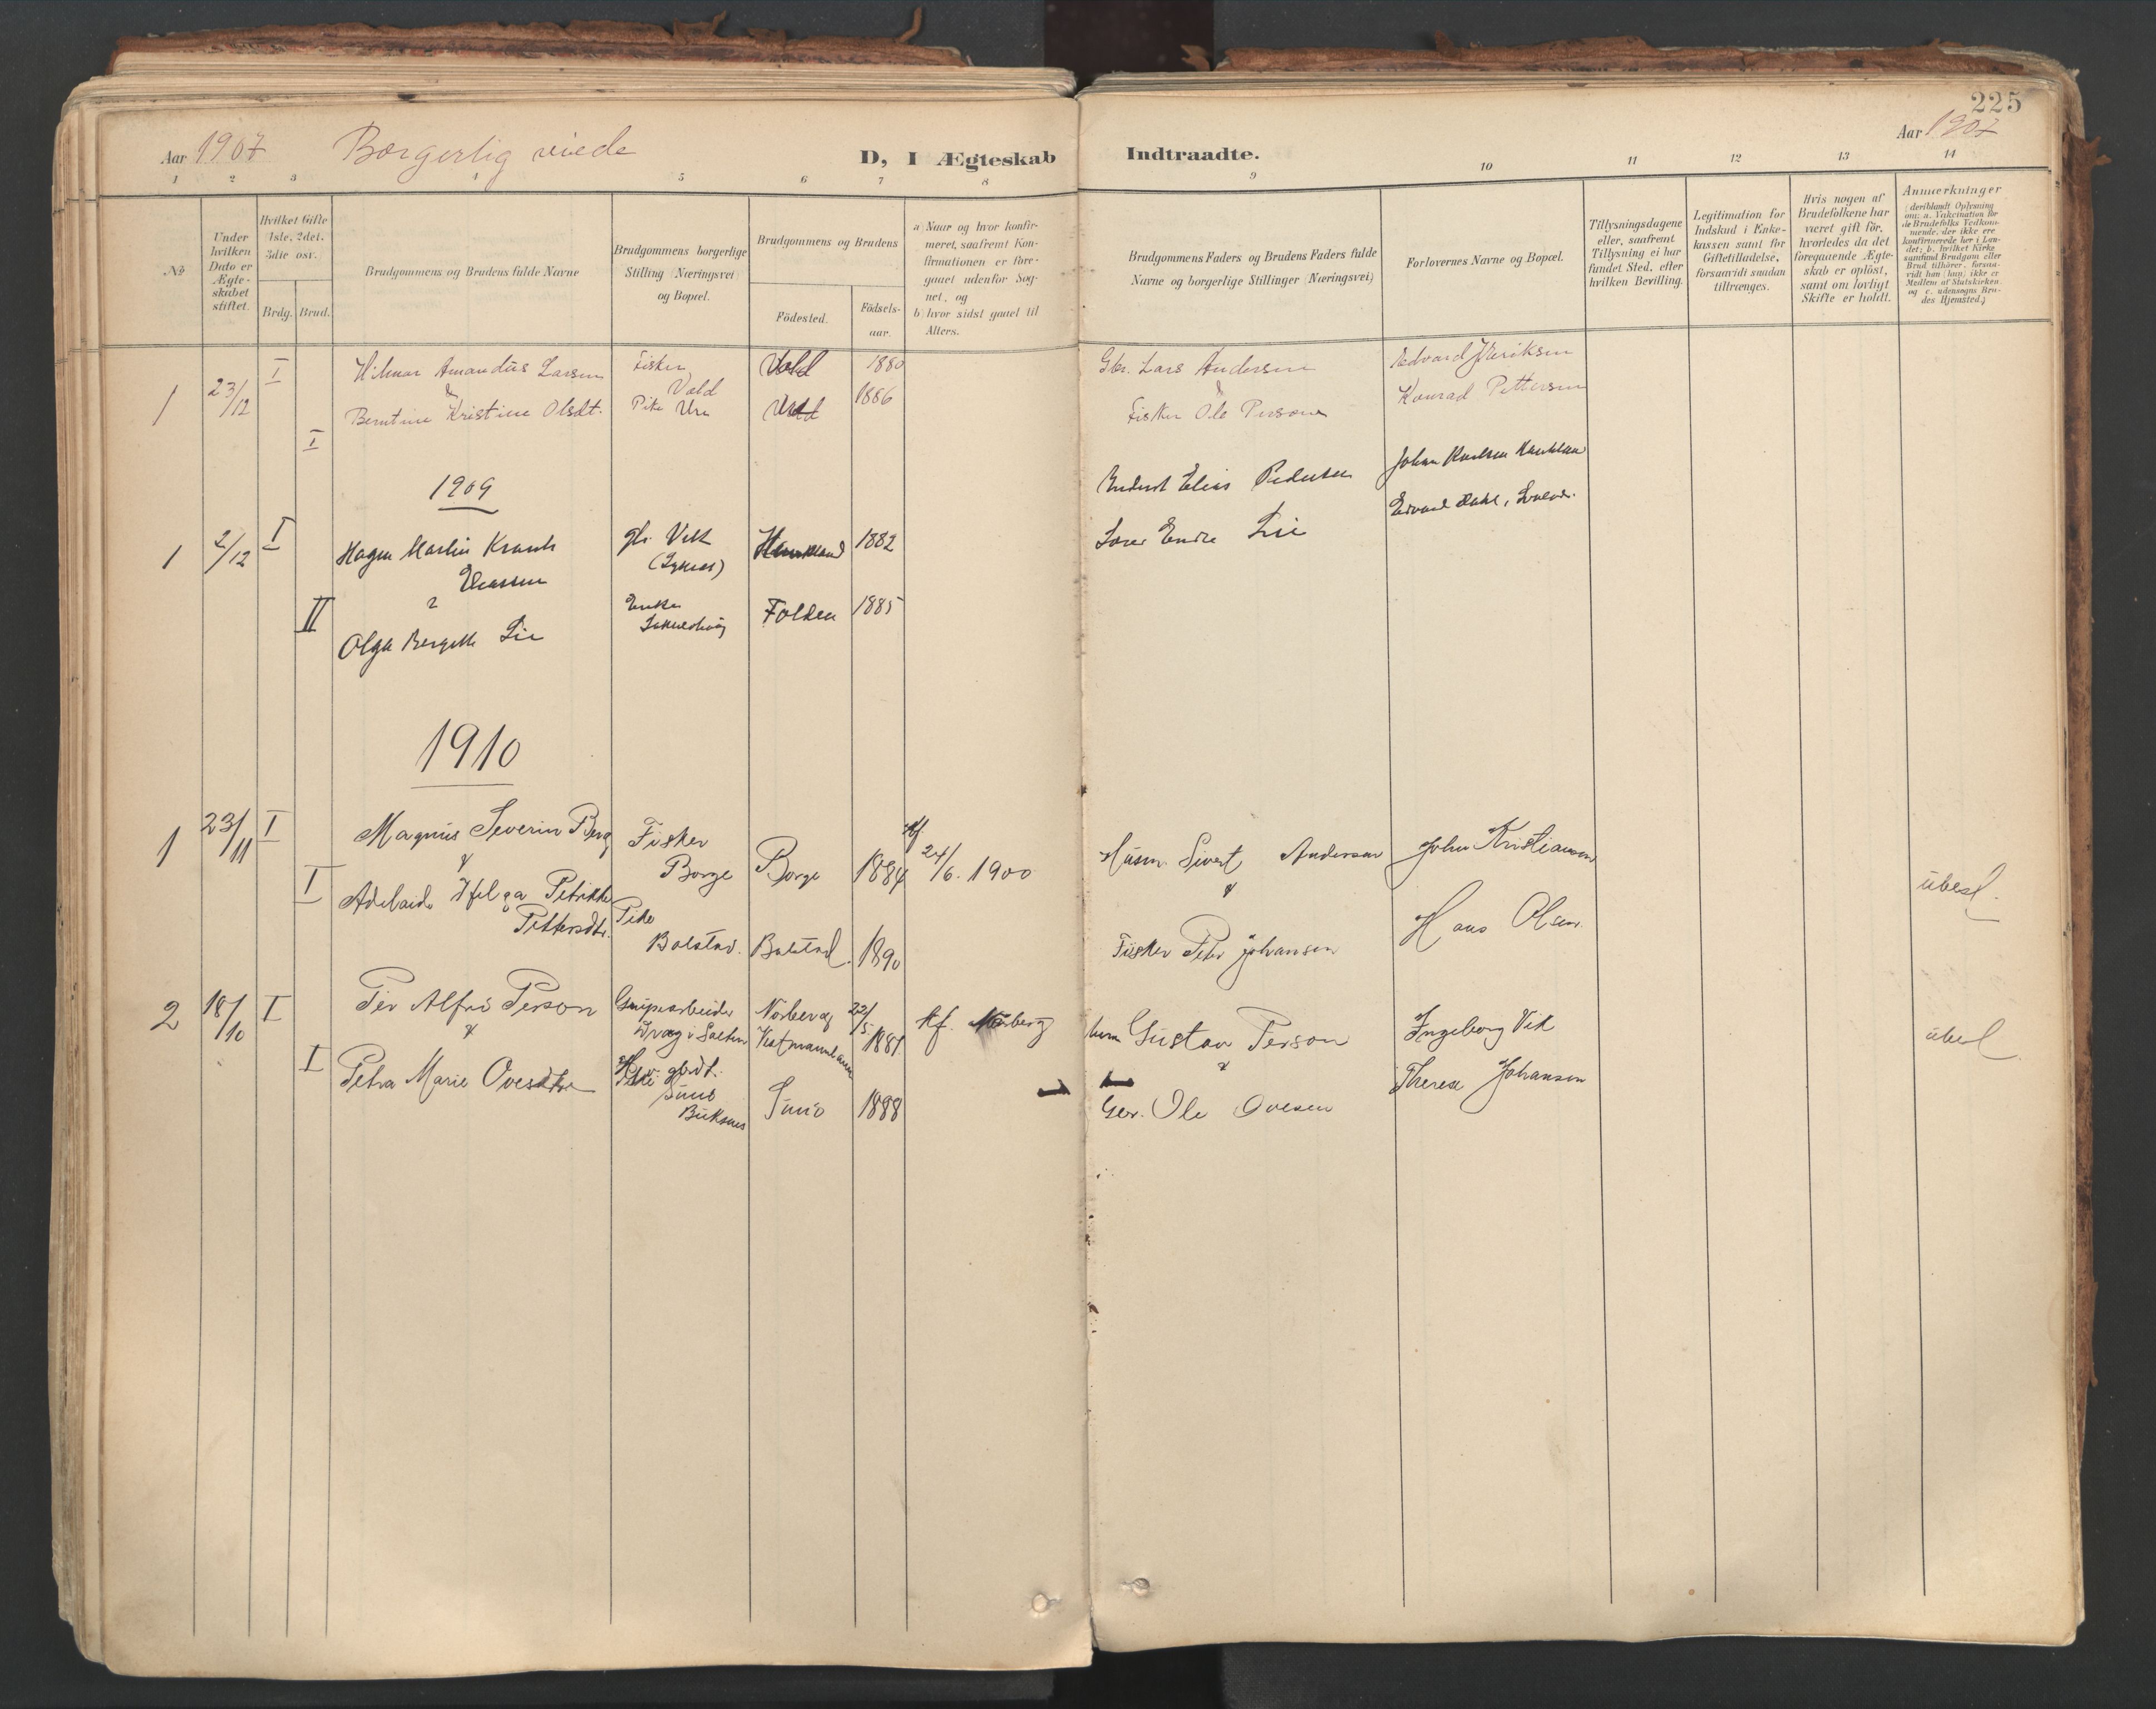 225
Aar 1907 Borgerlig viede D, I Ægteskab Indtraadte. Aar 1907
1 2 3 4 5 6 7 8 9 10 11 12 13 14
No
Under hvilken Dato er Ægteskabet stiftet.
Hvilket Gifte 1ste, 2det, 3die osv.
Brdg. Brud.
Brudgommens og Brudens fulde Navne
Brudgommens borgerlige Stilling (Næringsvei) og Bopæl.
Brudgommens og Brudens
Födested.
Födselsaar.
a) Naar og hvor konfirmeret, saafremt Konfirmationen er foregaaet udenfor Sognet, og
b) hvor sidst gaaet til Alters.
Brudgommens Faders og Brudens Faders fulde Navne og borgerlige Stillinger (Næringsvei)
Forlovernes Navne og Bopæl.
Tillysningsdagene eller, saafremt Tillysning ei har fundet Sted, efter hvilken Bevilling.
Legitimation for Indskud i Enkekassen samt for Giftetilladelse, forsaavidt saadan tiltrænges.
Hvis nogen af Brudefolkene har været gift för, hvorledes da det foregaaende Ægteskab er oplöst, samt om lovligt Skifte er holdt.
Anmærkninger
(deriblandt Oplysning om: a. Vakcination for de Brudefolks Vedkommende, der ikke ere konfirmerede her i Landet; b. hvilket Kirkesamfund Brudgom eller Brud tilhörer, forsaavidt han (hun) ikke er Medlem af Statskirken, og c. udensogns Brudes Hjemsted.)
1 23/12 I Hilmar Amandus Larsen Fisker Vold Vold 1880 Gbr. Lars Andersen Edvard Henriksen
&
I Berntine Kristine Olsdt. Pike Ure 1886 Fisker Ole Person Konrad Pettersen
1909
1 2/12 I Hagen Martin Krank Eliassen Vik 1882 Elias Pedersen Johan
II Olga Bergitte Lie Enke Folden 1885 Endre Lie Edvard Dahl,
1910
1 23/11 I Magnus Severin Berg Fisker Borge Borge 1884 Kf 24/6. 1900 Husm. Sivert Andersen John Kristiansen
&
I Adelaide Helga Petrikke Pettersdtr. Pike Bolstad. Bolstad. 1890 Fisker Peter Johansen Hans Olsen
2 18/10 I Per Alfred Person Grubearbeider Drag i Salten Norberg 22/5 1881. Kf. Norberg Gustav Person Ingeborg Vik
&
I Petra Marie Ovesdtr Pike Sund Buksnes Sund 1888 Gbr. Ole Ovesen Therese Johansen